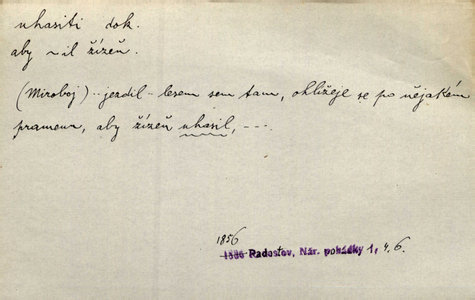 uhasiti dok.
aby ~il žízeň.
(Miroboj) ·· jezdil ·· lesem sem tam, ohlížeje se po nějakém
pramenu, aby žízeň uhasil, ---.
1856
1886 Radostov, Nár. pohádky 1, 4, 6.